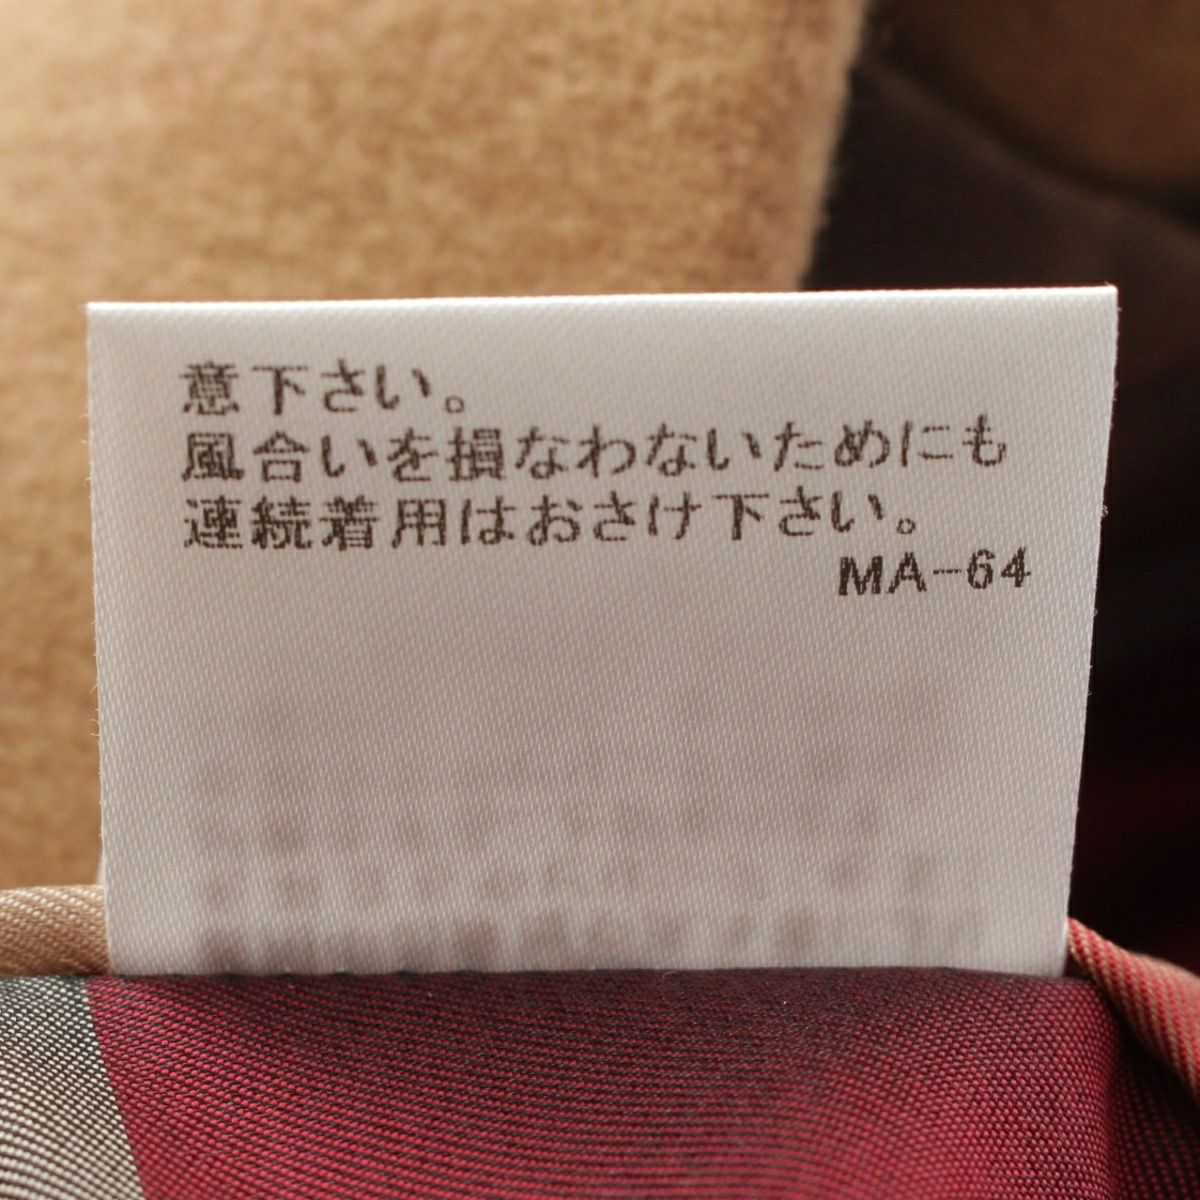 意下さい。
風合いを損なわないためにも
連続着用はおさけ下さい。
MA-64